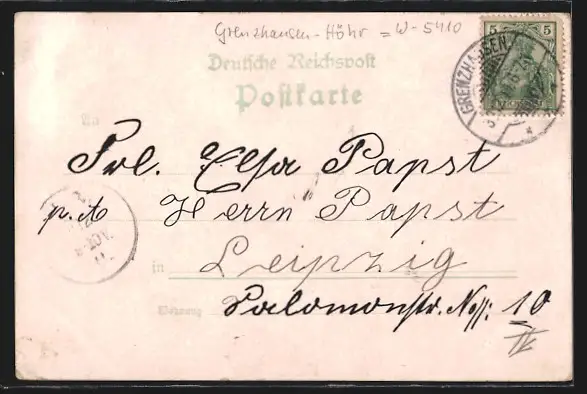 Grenzhausen-Höhr = W-5410
Deutsche Reichspost
Postkarte
5 5
GRENZHAUSEN
An
Frl. Elsa Papst
p. A Herrn Papst
in Leipzig
Wohnung Salomonstr. No 10
IV